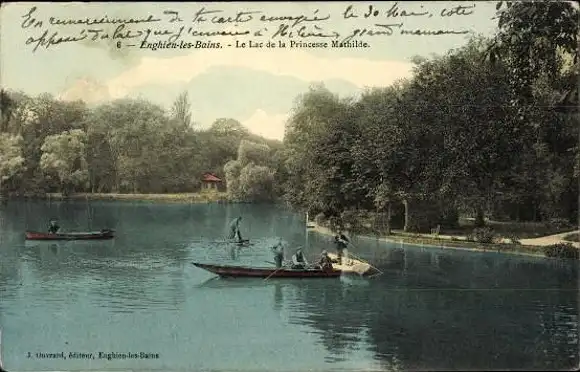 En remerciement de ta carte envoyée le 30 Mai, côté
opposé du lac, que j'envoie à Hélène, grand maman
6 - Enghien-les-Bains. - Le Lac de la Princesse Mathilde.
J. Ouvrard, éditeur, Enghien-les-Bains